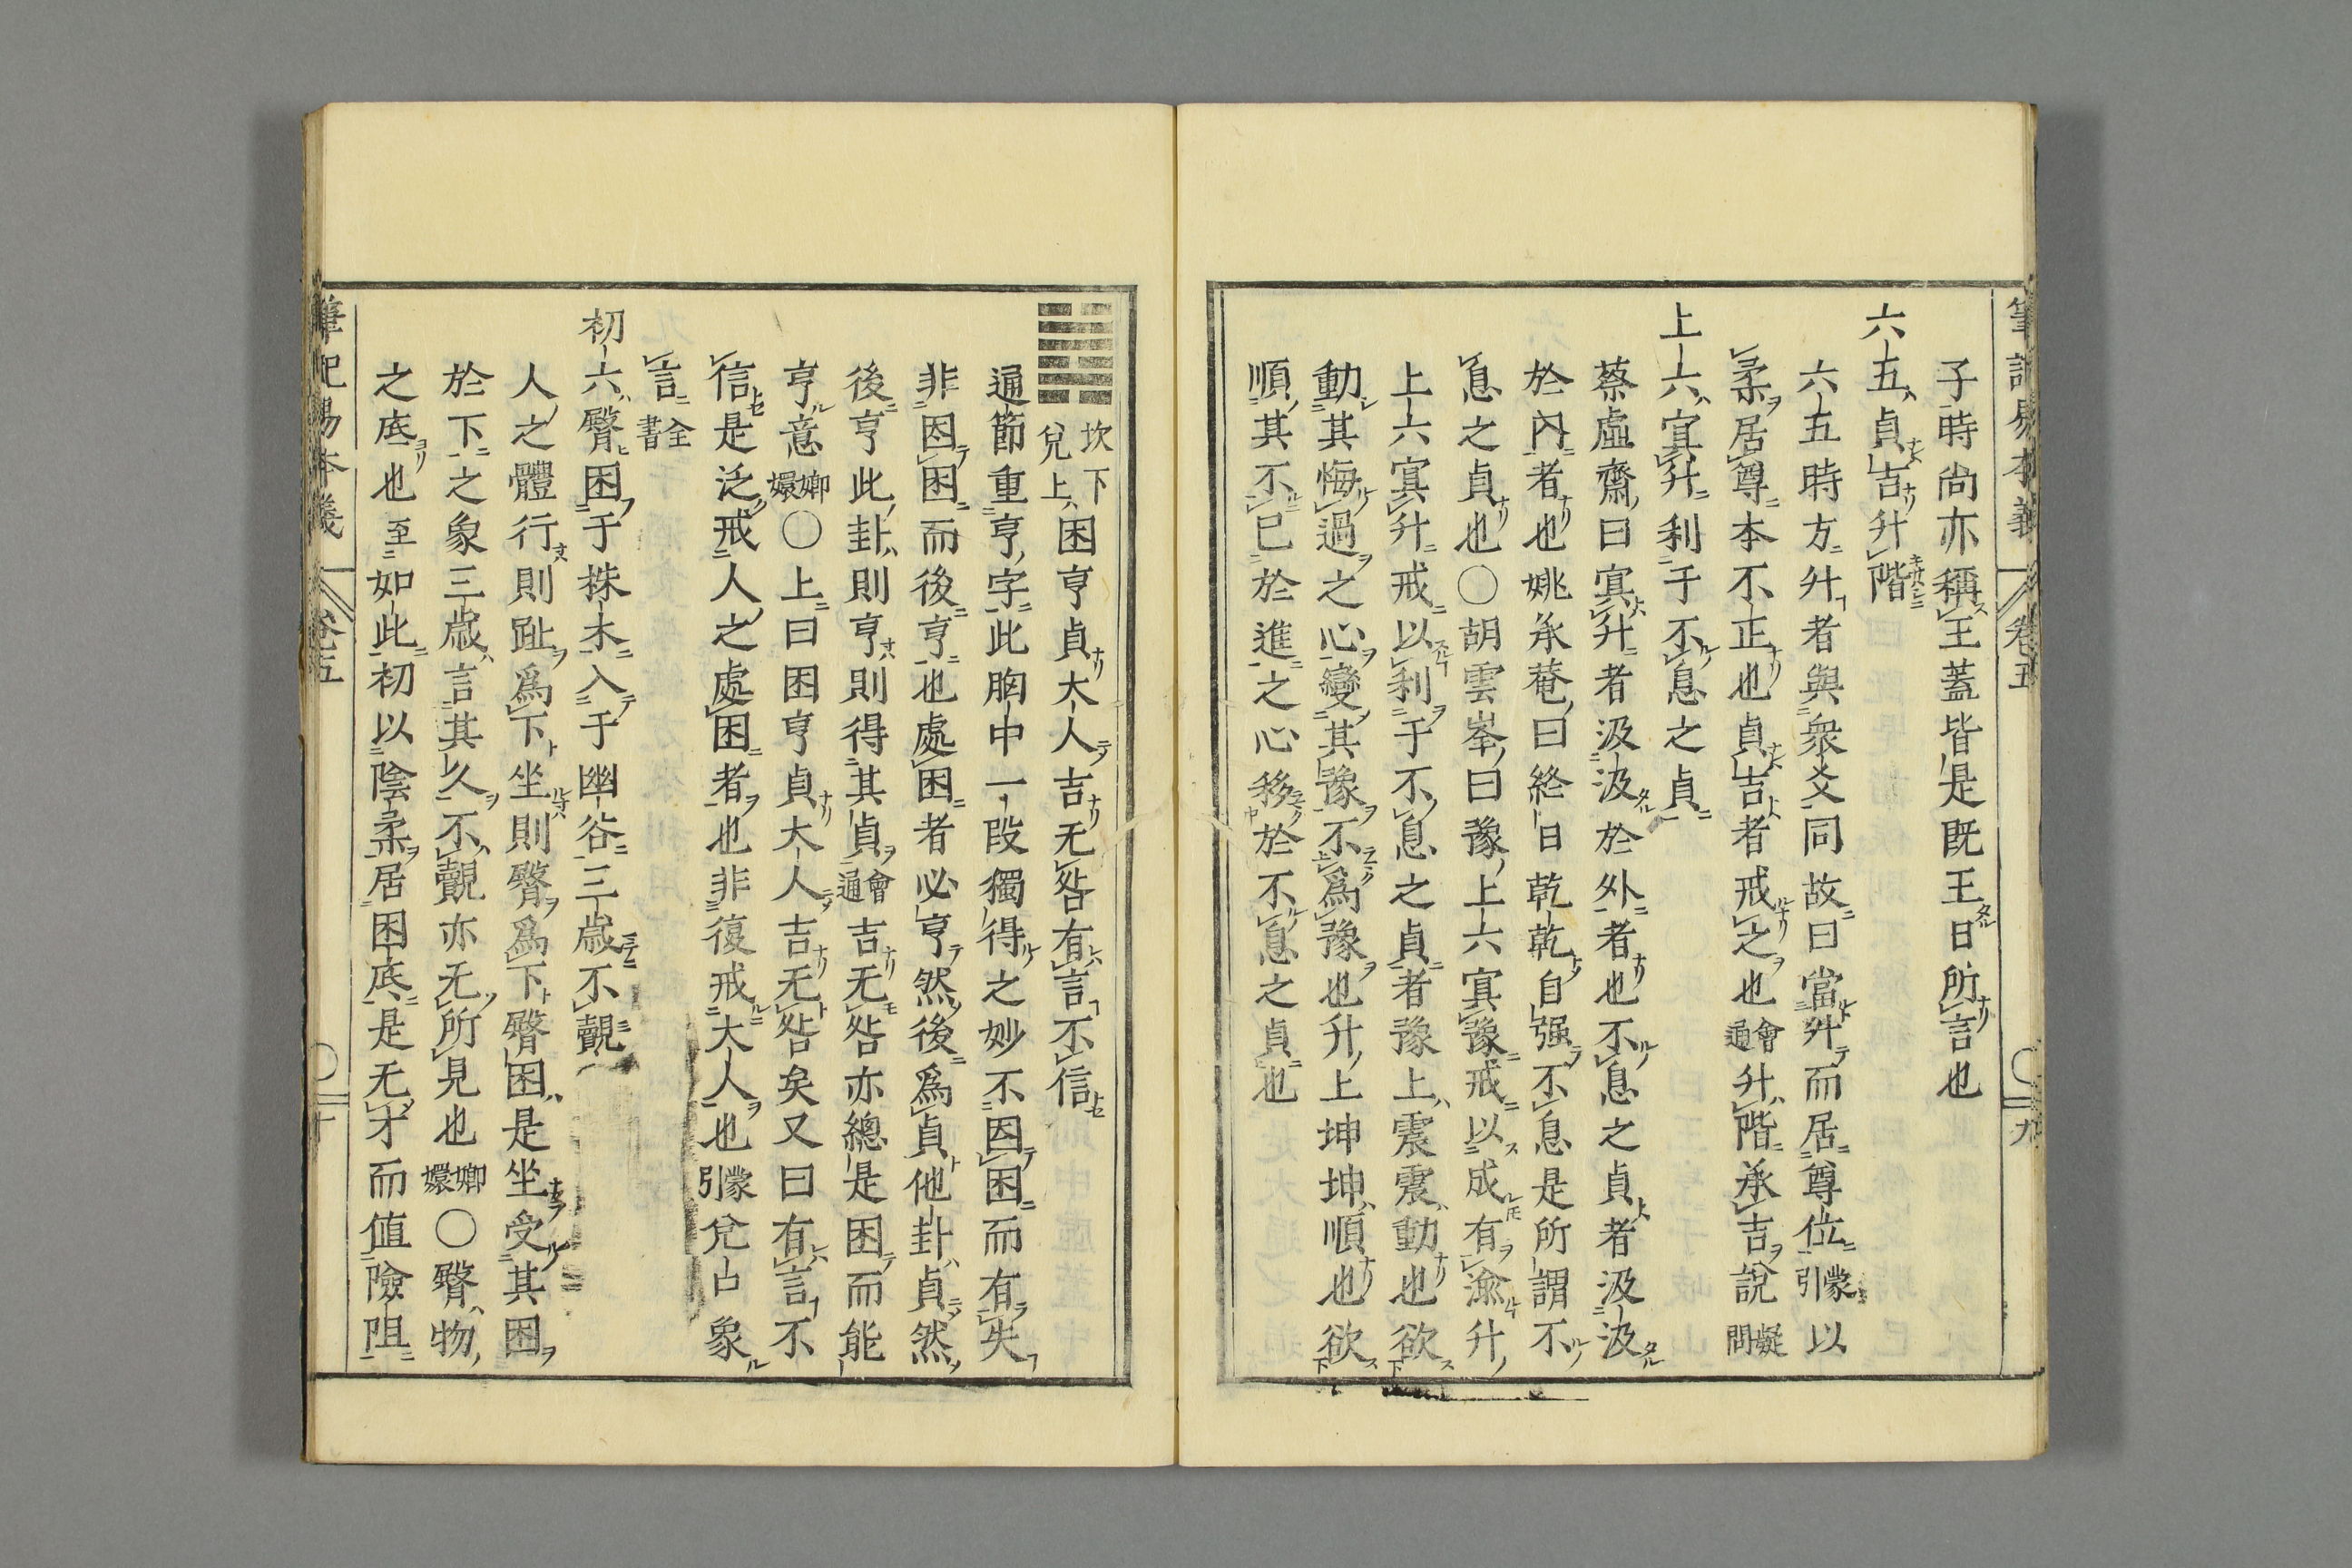 筆記易本義 卷五 〇 九
子時尚亦稱王蓋皆是既王日所言也
六五貞吉升階
六五時方升者與衆爻同故曰當升而居尊位蒙引以
柔居尊本不正也貞吉者戒之也會通升階承吉說疑問
上六冥升利于不息之貞
蔡虛齋曰冥升者汲汲於外者也不息之貞者汲汲
於內者也姚承菴曰終日乾乾自强不息是所謂不
息之貞也〇胡雲峯曰豫上六冥豫戒以成有渝升
上六冥升戒以利于不息之貞者豫上震震動也欲
動其悔過之心變其豫不為豫也升上坤坤順也欲
順其不已於進之心移於不息之貞也
坎下兌上困亨貞大人吉无咎有言不信
通節重亨字此胸中一段獨得之妙不因困而有失
非因困而後亨也處困者必亨然後為貞他卦貞然
後亨此卦則亨則得其貞會通吉无咎亦總是困而能
亨意嫏嬛〇上曰困亨貞大人吉无咎矣又曰有言不
信是泛戒人之處困者也非復戒大人也蒙引兌口象
言全書
初六臀困于株木入于幽谷三歲不覿
人之體行則趾為下坐則臀為下臀困是坐受其困
於下之象三歲言其久不覿亦无所見也嫏嬛〇臀物
之底也至如此初以陰柔居困底是无才而值險阻
筆記易本義 卷五 〇 十